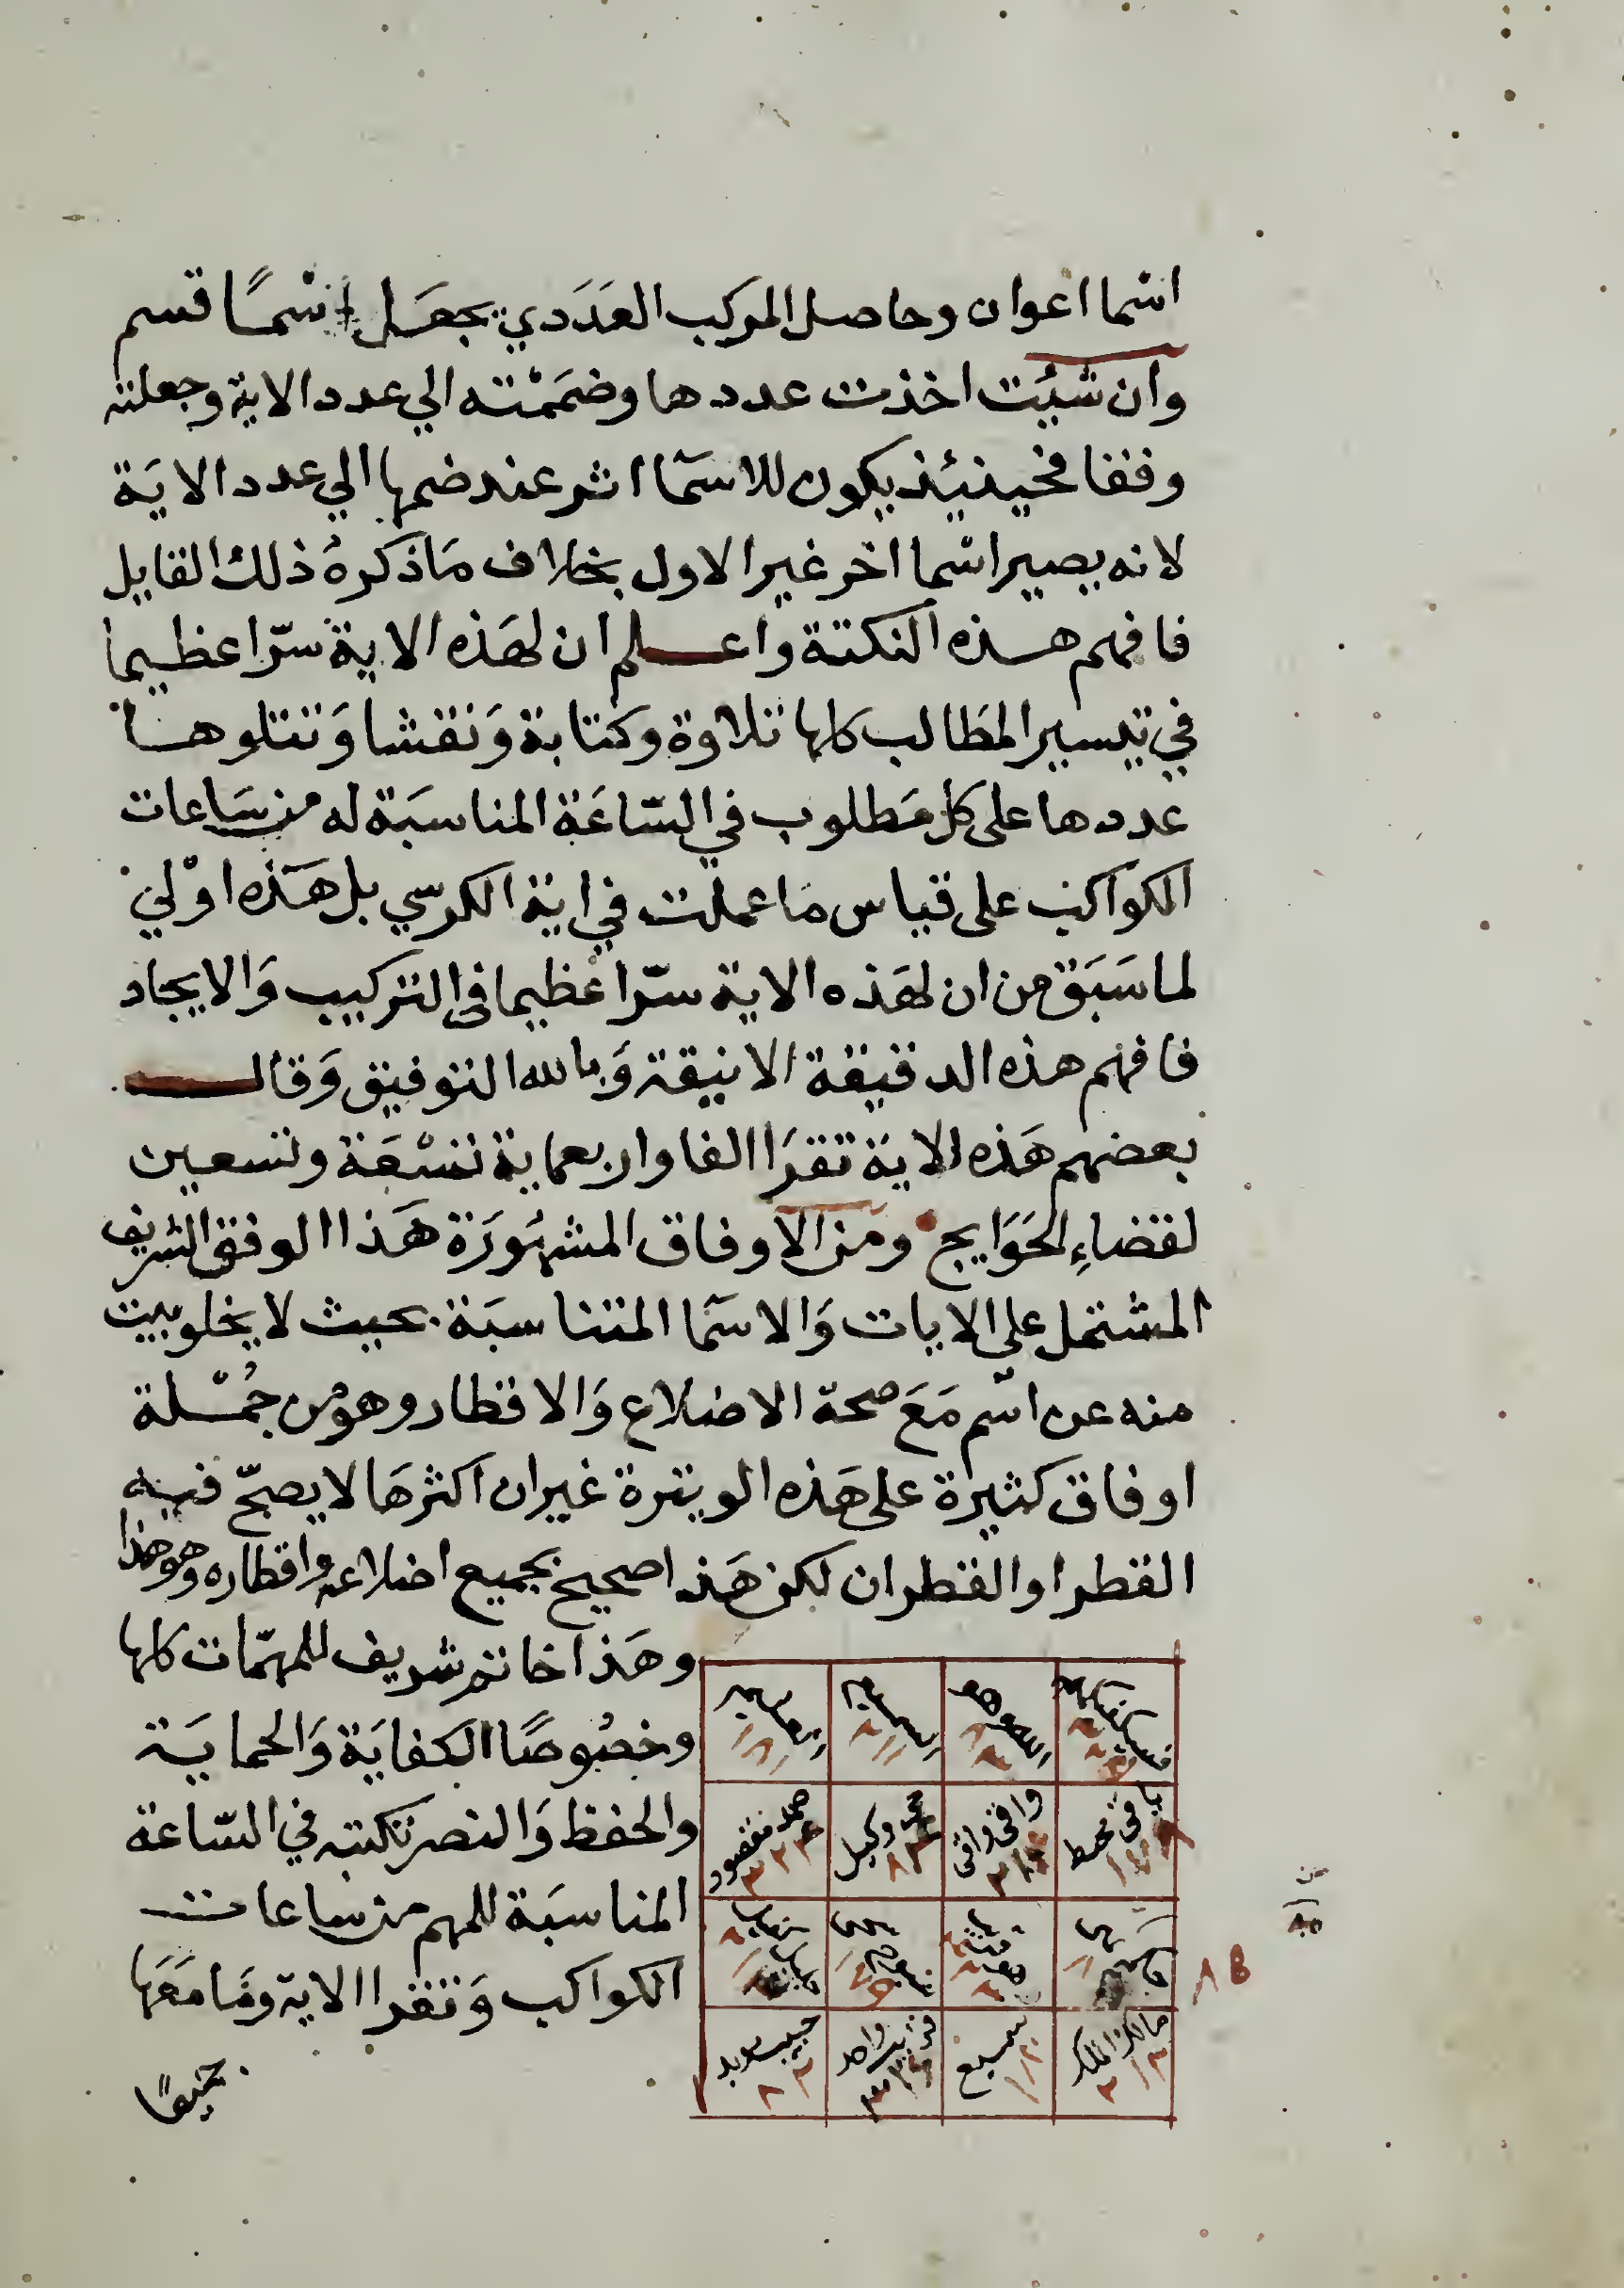 اسما اعوان وحاصل المركب العَدَدي يجعَل اسْمًا قسم
وان شيَت اخذت عددها وضمَمْته الي عدد الاية وجعلته
وفقا فحينيئذ يكون للاسَمَا اثر عند ضمها الي عدد الايَة
لانه يصير اسما اخر غير الاول بخلاف مَا ذكرهُ ذلك القايل
فافهم هذه النكتة واعلم ان لهَذه الاية سرّا عظيما
في تيسير المطَالب كلها تلاوة وكتابة وَنقشا وَتتلوها
عددها على كل مَطلوب في السّاعَة المناسبَة له من سَاعات
الكواكب على قياس مَا عملت في اية الكرسي بل هَذه اوْلي
لما سَبَق من ان لهَذه الاية سرّا عظيما في التركيب وَالايجاد
فافهم هذه الدقيقة الانيقة وَبالله التوفيق وَقال
بعضهم هَذه الايَة تقرَا الفا واربعماية تسْعَة وتسعين
لقضاءِ الحَوَايج ومَن الاوفاق المشهُورَة هَذا الوفق الشريف
المشتمل على الايات وَالاسَما المتناسبَة بحيث لا يخلو بيت
منه عن اسم مَعَ صحة الاضلاع وَالاقطار وهو من جُمْلة
اوفاق كثيرة على هَذه الويترة غير ان اكثرهَا لا يصحّ فيه
القطر او القطران لكن هَذا صحيح بجميع اضلاعه واقطاره وهو هذا
وهَذا خاتم شريف للمهمّات كلها
وخصُوصًا الكفايَة وَالحمايَة
والحفظ وَالنصر تكتبه في السّاعة
المناسبَة للمهم من ساعات
الكواكب وَتقرا الاية ومَا مَعَها
جميعًا
باقى محيط
وافى واقى
وكيل
صمد مقصود
مالك الملك
سميع
واحد
حبيب